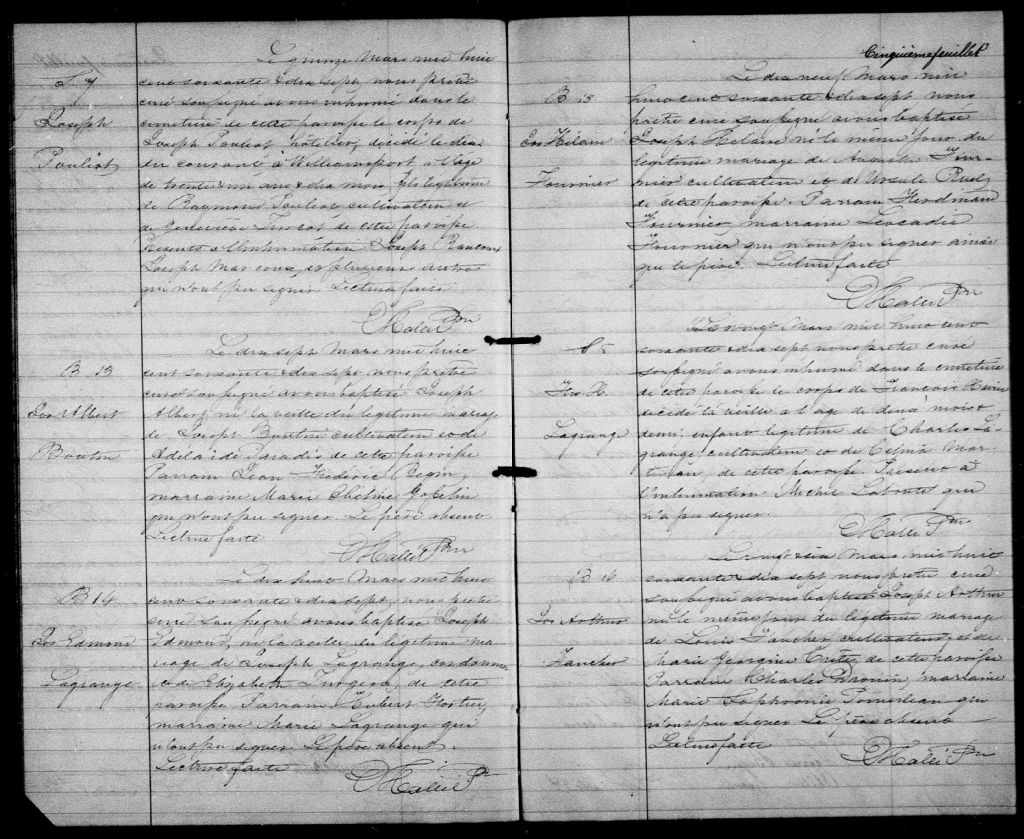 S 7
Joseph
Pouliot
Le quinze Mars mil huit
cent soixante & dix sept, nous prêtre
curé soussigné avons inhumé dans le
cimetière de cette paroisse le corps de
Joseph Pouliot hôtelier, décédé le dix
du courant à Williamsport à l'age
de trente & un ans & dix mois, fils légitime
de Raymond Pouliot cultivateur et
de Geneviève de cette paroisse.
Présents à l'inhumation Joseph
Joseph Marcoux, et plusieurs autres
qui n'ont pu signer. Lecture faite
Ptre
B 13
Jos Albert
Boutin
Le dix sept Mars mil huit
cent soixante & dix sept nous prêtre
curé soussigné avons baptisé Joseph
Albert né la veille du légitime mariage
de Joseph Boutin cultivateur et de
Adelaide Paradis de cette paroisse
Parrain Jean Frédéric Begin,
marraine Marie Gosselin
qui n'ont pu signer. Le père absent
Lecture faite
Ptre
B 14
Jos Edmond
Lagrange
Le dix huit Mars mil huit
cent soixante & dix sept, nous prêtre
curé soussigné avons baptisé Joseph
Edmond, né la veille du légitime ma-
riage de Joseph Lagrange, cordonnier
& de Elizabeth Turgeon, de cette
paroisse Parrain Hubert
marraine Marie Lagrange qui
n'ont pu signer Le père absent.
Lecture faite
Ptre
Cinquième feuillet
B 15
Jos Hilaire
Fournier
Le dix neuf Mars mil
huit cent soixante & dix sept nous
prêtre curé soussigné avons baptisé
Joseph Hilaire né le même jour du
légitime mariage de Augustin Four-
nier cultivateur et de Ursule Ruel
de cette paroisse. Parrain Ferdinand
Fournier, marraine Léocadie
Fournier qui n'ont pu signer ainsi
que le père. Lecture faite
Ptre
S 5
Frs X.
Lagrange
Le vingt Mars mil huit cent
soixante & dix sept nous prêtre curé
soussigné avons inhumé dans le cimetière
de cette paroisse le corps de François Xavier
décédé la veille à l'age de deux mois &
demi, enfant légitime de Charles La-
grange, cultivateur et de Célina Mar-
de cette paroisse. Présent à
l'inhumation Michel Labonté qui
n'a pu signer.
Ptre
B 16
Jos Arthur
Faucher
Le vingt & six Mars, mil huit
soixante & dix sept nous prêtre curé
soussigné avons baptisé Joseph Arthur
né le même jour du légitime mariage
de Louis Faucher cultivateur, et de
Marie Georgine de cette paroisse
Parrain Charles Drouin, marraine
Marie Sophronie Pomerleau qui
n'ont pu signer Le père absent
Lecture faite
Ptre